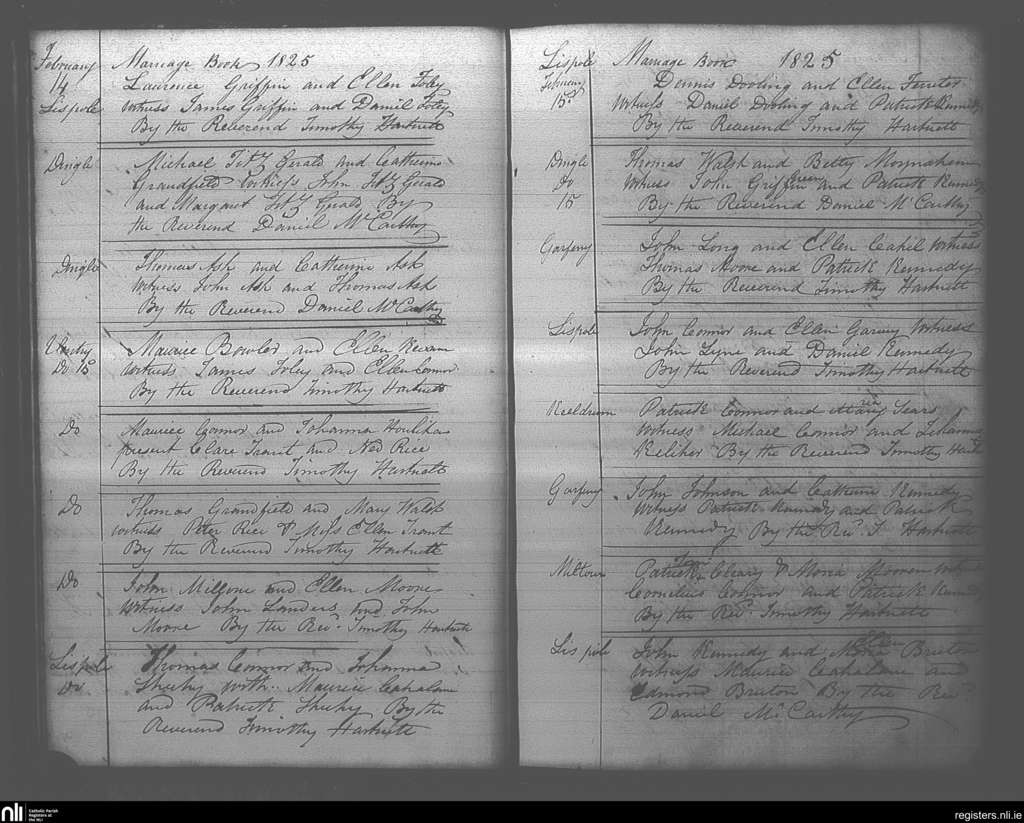 February Marriage Book 1825
14 Laurence Griffin and Ellen Foley
Lispole Witness James Griffin and Daniel Foley
By the Reverend Timothy Hartnett
Dingle Michael Fitz Gerald and Catherine
Grandfield Witness John Fitz Gerald
and Margaret Fitz Gerald By
the Reverend Daniel McCarthy
Dingle Thomas Ash and Catherine Ash
Witness John Ash and Thomas Ash
By the Reverend Daniel McCarthy
Maurice Bowler and Ellen
Do 15 Witness James Foley and Ellen Connor
By the Reverend Timothy Hartnett
Do Maurice Connor and Johanna Houlihan
present Clare Trant and Ned Rice
By the Reverend Timothy Hartnett
Do Thomas Grandfield and Mary Walsh
witness Peter Rice & Miss Ellen Trant
By the Reverend Timothy Hartnett
Do John and Ellen Moore
Witness John Landers and John
Moore By the Revd. Timothy Hartnett
Lispole Thomas Connor and Johanna
Do Sheehy with. Maurice Cahalane
and Patrick Sheehy By the
Reverend Timothy Hartnett
Lispole Marriage Book 1825
February Dennis Dooling and Ellen Ferriter
15 Witness Daniel Dooling and Patrick Kennedy
By the Reverend Timothy Hartnett
Dingle Thomas Walsh and Betty
Do Witness John Griffin and Patrick Kennedy
15 By the Reverend Daniel McCarthy
Garfeny John Long and Ellen Cahil Witness
Thomas Moore and Patrick Kennedy
By the Reverend Timothy Hartnett
Lispole John Connor and Ellen Garvey Witness
John Lyne and Daniel Kennedy
By the Reverend Timothy Hartnett
Keeldrum Patrick Connor and Sears
Witness Michael Connor and Johanna
Keliher By the Reverend Timothy Hart
Garfeny John Johnson and Catherine Kennedy
Witness Patrick Kennedy and Patrick
Kennedy By the Revd. T Hartnett
Miltown Patrick Cleary & Moria
Cornelius Connor and Patrick Kennedy
By the Revd. Timothy Hartnett
Lispole John Kennedy and Ellen Bruton
Witness Maurice Cahalane and
Edmond Bruton By the Revd.
Daniel McCarthy
nli Catholic Parish
Registers at
the NLI
registers.nli.ie